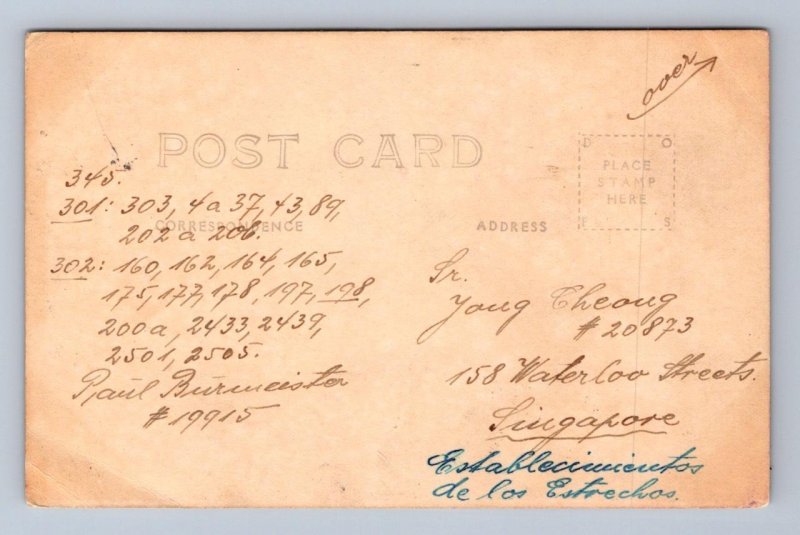 over
POST CARD
D O
PLACE
STAMP
HERE
E S
345.
301: 303, 4a 37, 43, 89,
202 a 206.
CORRESPONDENCE
302: 160, 162, 164, 165,
175, 177, 178, 197, 198,
200a, 2433, 2439,
2501, 2505.
Raúl Burmeister
#19915
ADDRESS
Sr.
Yong Cheong
# 20873
158 Waterloo Streets.
Singapore
Establecimientos
de los Estrechos.